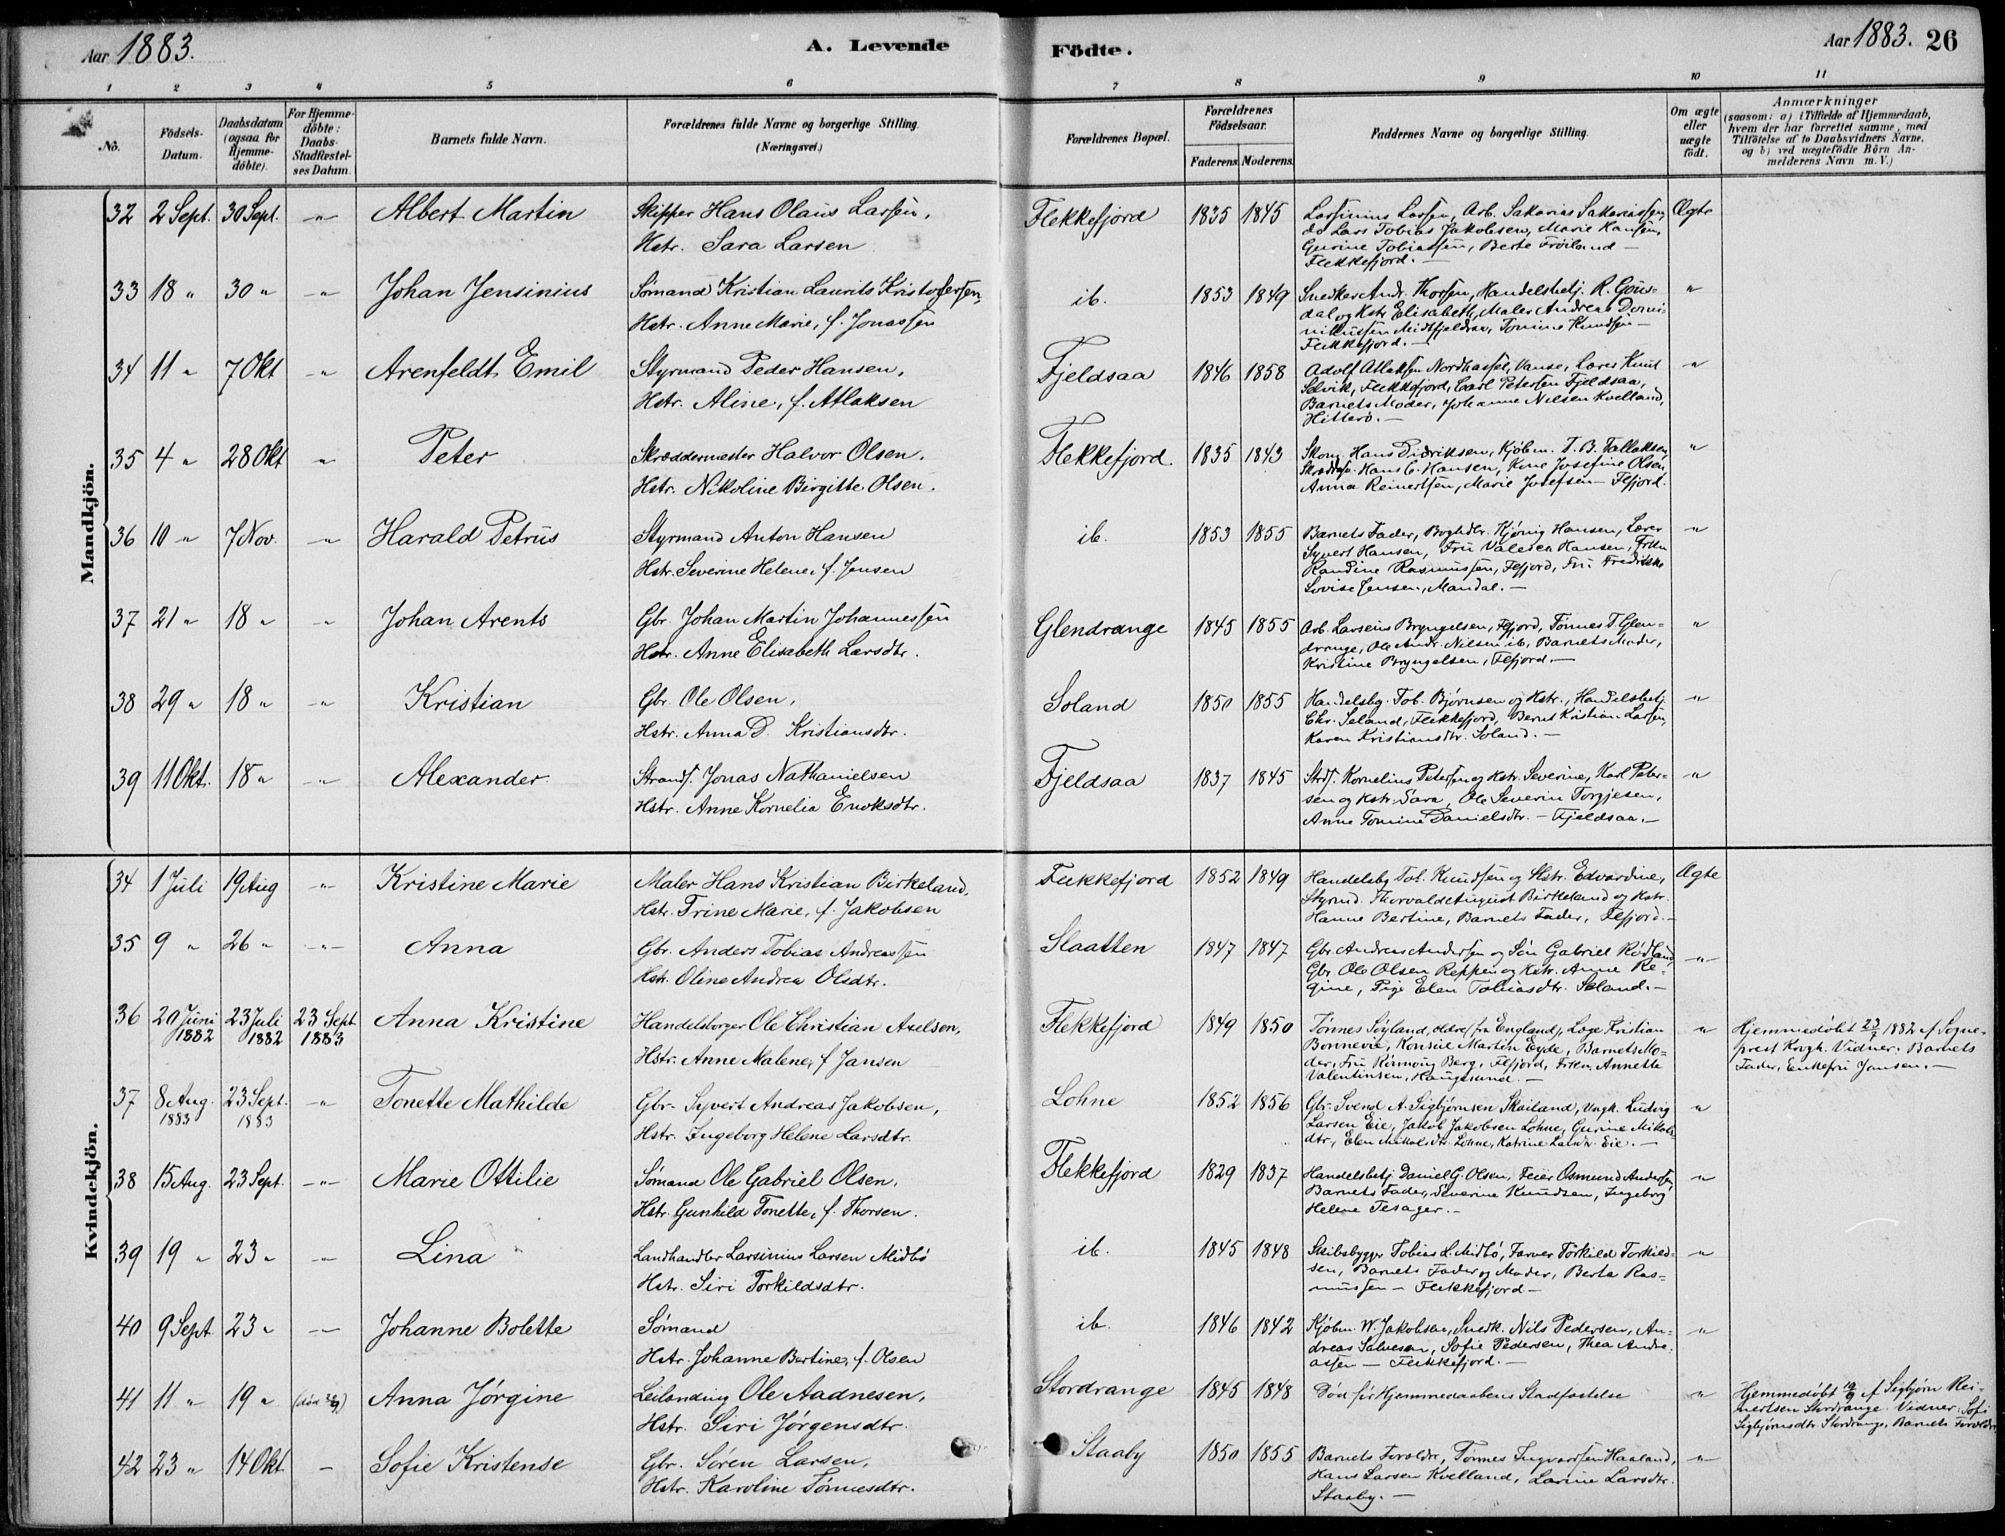 Aar 1883. A. Levende Födte. Aar 1883. 26
1 2 3 4 5 6 7 8 9 10 11
No. Födsels-Datum. Daabsdatum (ogsaa for Hjemmedöbte). For Hjemmedöbte: Daabs-Stadfæstelses Datum. Barnets fulde Navn. Forældrenes fulde Navne og borgerlige Stilling. (Næringsvei.) Forældrenes Bopæl. Forældrenes Födselsaar. Faderens. Moderens. Faddernes Navne og borgerlige Stilling. Om ægte eller uægte födt. Anmærkninger (saasom: a) i Tilfælde af Hjemmedaab, hvem der har forrettet samme, med Tilföielse af to Daabsvidners Navne, og b) ved uægtefödte Börn Anmelderens Navn m. V.)
Mandkjön.
32 2 Sept. 30 Sept. " Albert Martin Skipper Hans Olaus Larsen, Flekkefjord 1835 1845 Larsinius Larsen, Arb. Sakarias Sakariassen, Ægte
Hstr. Sara Larsen do Lars Tobias Jakobsen, Marie Hansen,
Gurine Tobiassen, Berte Fröiland —
Flekkefjord. —
33 18 " 30 " " Johan Jensinius Sømand Kristian Laurits Kristofersen, ib. 1853 1849 Snedker Andr. Thorsen, Handelsbetj. R. "
Hstr. Anne Marie, f. Jonassen dal og Hstr Elisabeth, Maler Andreas Domi-
nikussen Midtfjeldsaa, Tomine Knudsen —
Flekkefjord. —
34 11 " 7 Okt " Arenfeldt Emil Styrmand Peder Hansen, Fjeldsaa 1846 1858 Adolf Atlaksen Nordhassel, Vanse, Lars Knut "
Hstr. Aline, f. Atlaksen Selvik, Flekkefjord, Carl Petersen Fjeldsaa,
Barnets Moder, Johanne Nilsen Kvelland,
Hitterö. —
35 4 " 28 Okt " Peter Skræddermester Halvor Olsen. Flekkefjord. 1835 1843 Skom. Hans Didriksen, Kjöbm. T. B. Tallaksen, "
Hstr. Nikoline Birgitte Olsen. Hans C. Hansen, Kone Josefine Olsen,
Anna Reinertsen, Marie Josefsen — Flfjord.
36 10 " 7 Nov. " Harald Petrus Styrmand Anton Hansen ib. 1853 1855 Barnets Fader, Boghdlr. Kjönig Hansen, Lærer "
Hstr. Severine Helene, f. Jensen Syvert Hansen, Fru Valesca Hansen, Frkn
Randine Rasmussen, Flfjord, Fru Fredrikke
Lovise Jensen, Mandal. —
37 21 " 18 " " Johan Arents Gbr. Johan Martin Johannessen Glendrange 1845 1855 Arb. Larseius Bryngelsen, Flfjord, Tönnes T. Glen- "
Hstr. Anne Elisabeth Larsdtr. drange, Ole Andr. Nilsen ib, Barnets Moder,
Kristine Bryngelsen, Flfjord. —
38 29 " 18 " " Kristian Gbr. Ole Olsen, Soland 1850 1855 Handelsbg. Tob. Bjørnsen og Hstr., Handelsbetj. "
Hstr. Anna D. Kristiansdtr. Chr. Seland, Flekkefjord, Bernt Kristian Larsen,
Karen Kristiansdtr. Soland. —
39 11 Okt. 18 " " Alexander Strands. Jonas Nathanielsen Fjeldsaa 1837 1845 Strds. Kornelius Petersen og Hstr. Severine, Karl Peter- "
Hstr. Anne Kornelia Enoksdtr. sen og Hstr. Sara, Ole Severin Torgjesen,
Anne Tomine Danielsdtr. — Fjeldsaa. —
Kvindekjön.
34 1 Juli 19 Aug " Kristine Marie Maler Hans Kristian Birkeland, Flekkefjord 1852 1849 Handelsbg. Tol. Knudsen og Hstr. Edvardine, Ægte
Hstr. Trine Marie, f. Jakobsen Styrmd. Thorvald August Birkeland og Hstr.
Hanne Bertine, Barnets Fader, Flfjord. —
35 9 " 26 " " Anna Gbr. Anders Tobias Andreassen Slaatten 1847 1847 Gbr. Andreas Andersen og Sön Gabriel Rödland "
Hstr. Oline Andrea Olsdtr. Gbr. Ole Olsen Reppen og Hstr. Anne Re-
gine, Pige Elen Tobiasdtr. Seland. —
36 20 Juni 1882 23 Juli 1882 23 Sept 1883 Anna Kristine Handelsborger Ole Christian Axelsen, Flekkefjord 1849 1850 Tönnes Söyland, (fra England), Læge Kristian " Hjemmedøbt 23/7 1882 af Sogne-
Hstr. Anne Malene, f. Jansen Bonnevie, Konsul Martin Eyde, Barnets Mo- prest Krogh. Vidner: Barnets
der, Fru Berg, Flfjord, Frkn. Annette Fader, Enkefru Jansen. —
Valentinsen, Haugesund. —
37 8 Aug. 1883 23 Sept. 1883 " Tonette Mathilde Gbr. Syvert Andreas Jakobsen, Lohne 1852 1856 Gbr. Svend A. Sigbjørnsen Skailand, Ungk. Ludvig "
Hstr. Ingeborg Helene Larsdtr. Larsen Eie, Jakob Jakobsen Lohne, Gurine Mikals-
dtr, Elen Mikalsdtr. Lohne, Katrine Larsdtr. Eie. —
38 15 Aug. 23 Sept. " Marie Ottilie Sømand Ole Gabriel Olsen, Flekkefjord 1829 1837 Handelsbetj. Daniel G. Olsen, Feier Osmund Andersen "
Hstr. Gunhild Tonette, f. Thorsen. Barnets Fader, Severine Knudsen, Ingeborg
Helene Tesager. —
39 19 " 23 " " Lina Landhandler Larsinius Larsen Midbö ib. 1845 1848 Skibsbygger Tobias L. Midbö, Farver Torkild Torkild- "
Hstr. Siri Torkildsdtr. sen, Barnets Fader og Moder, Berta Ras-
mussen — Flekkefjord —
40 9 Sept 23 " " Johanne Bolette Sømand ib. 1846 1842 Kjöbm. W. Jakobsen, Snedk. Nils Pedersen, An- "
Hstr. Johanne Bertine, f. Olsen dreas Salvesen, Sofie Pedersen, Thea Andre-
assen — Flekkefjord. —
41 11 " 19 " (död) Anna Jørgine Leilending Ole Aadnesen, Stordrange 1845 1848 Död för Hjemmedaabens Stadfæstelse " Hjemmedøbt 19/9 af Sigbjörn Rei-
Hstr. Siri Jørgensdtr. nertsen Stordrange. Vidner: Sofi
Sigbjörnsdtr. Stordrange, Barnets Foreldre.
42 23 " 14 Okt — Sofie Kristense Gbr. Sören Larsen, Staaby 1850 1855 Barnets Foreldr., Tönnes Ingvardsen Haaland, "
Hstr. Karoline Tönnesdtr. Hans Larsen Kvelland, Larine Larsdtr.
Staaby. —